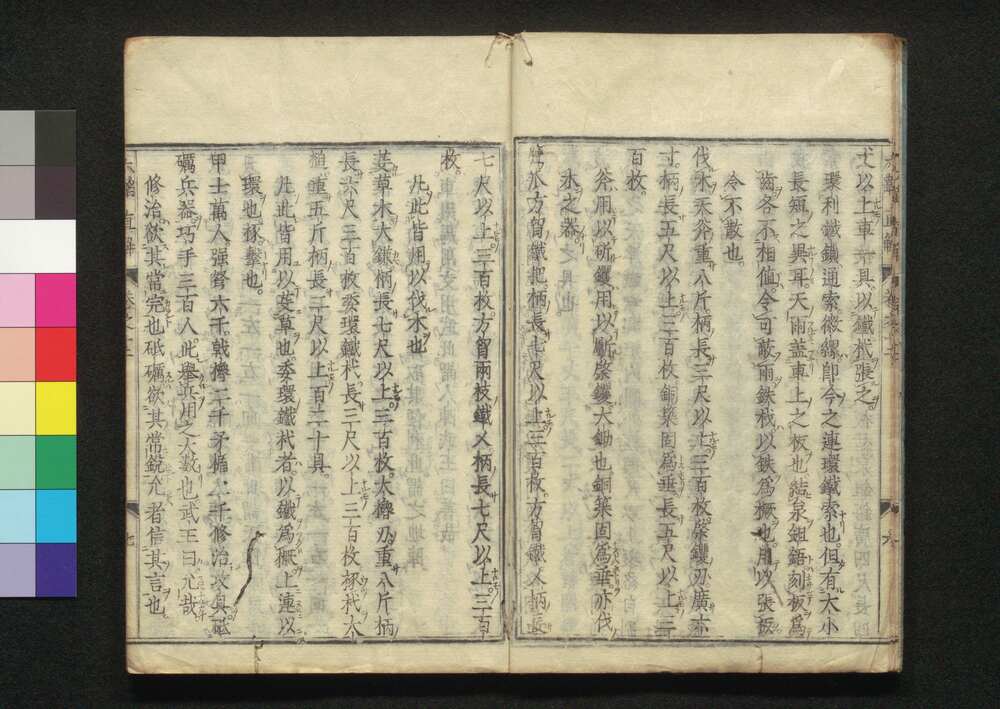 丈以上車一具以鐵杙張之
環利鐵鎖通索微縲卽今之連環鐵索也但有大小
長短之異耳天雨蓋車上之板也結枲鉏鋙刻板爲
齒各不相值令可蔽雨鐵杙以鉄爲橛也用以張板
令不散也
伐木天斧重八斤柄長三尺以上三百枚棨钁刃廣六
寸柄長五尺以上三百枚銅築固爲垂長五尺以上三
百枚
斧用以斫钁用以斸棨钁大鋤也銅築固爲垂亦伐
木之器
鷹爪方胷鐵把柄長七尺以上三百枚方胷鐵乂柄長
七尺以上三百枚方胷兩枝鐵乂柄長七尺以上三百
枚
凡此皆用以伐木也
芟草木大鎌柄長七尺以上三百枚大櫓刃重八斤柄
長六尺三百枚委環鐵杙長三尺以上三百枚椓杙大
槌重五斤柄長二尺以上百二十具
凡此皆用以芟草也委環鐵杙者以鐵爲橛上連以
環也椓擊也
甲士萬人强弩六千戟櫓二千矛楯二千修治攻具砥
礪兵器巧手三百人此擧兵用之大數也武王曰允哉
修治欲其當完也砥礪欲其常銳允者信其言也
六韜直解
七